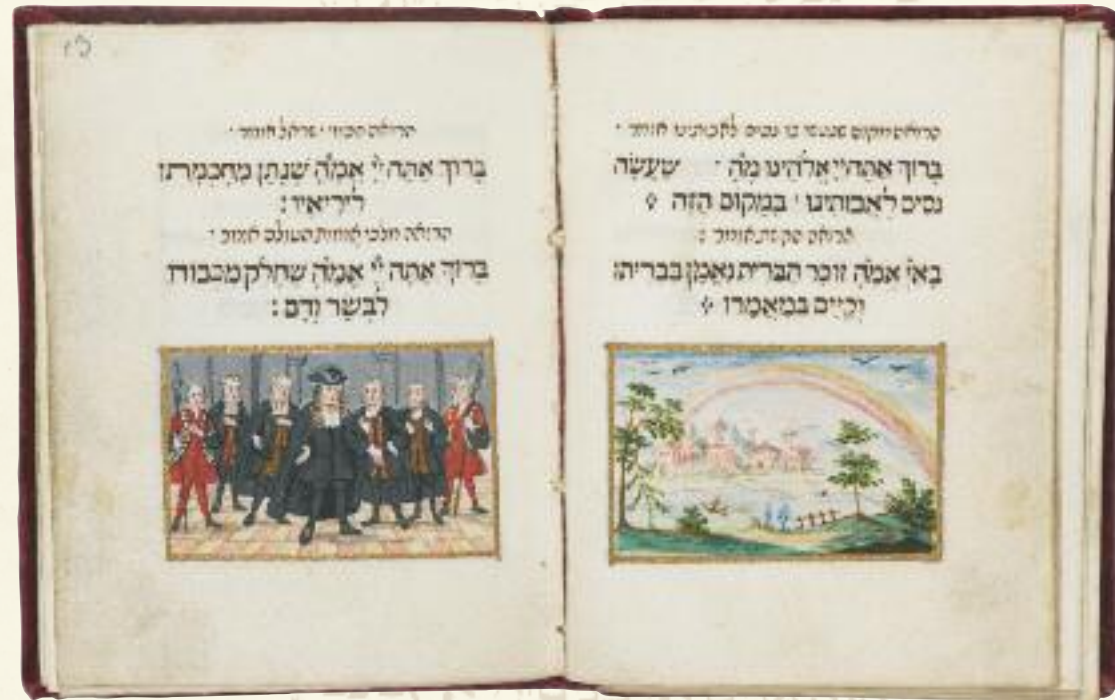 הרואה מקום שנעשו בו נסים לאבותינו אומר
בָּרוּךְ אַתָּה יְיָ אֱלֹהֵינוּ מֶ״הָ שֶׁעָשָׂה
נִסִּים לַאֲבוֹתֵינוּ בַּמָּקוֹם הַזֶּה
הרואה הקשת אומר
בָּ״אֲ״יְ אֱמֶ״הָ זוֹכֵר הַבְּרִית נֶאֱמָן בִּבְרִיתוֹ
וְקַיָּים בְּמַאֲמָרוֹ
הרואה חכמי ישראל אומר
בָּרוּךְ אַתָּה יְיָ אֱמֶ״הָ שֶׁנָּתַן מֵחָכְמָתוֹ
לִירֵיאָיו :
הרואה מלכי אומות העולם אומר
בָּרוּךְ אַתָּה יְיָ אֱמֶ״הָ שֶׁחָלַק מִכְּבוֹדוֹ
לְבָשָׂר וָדָם :